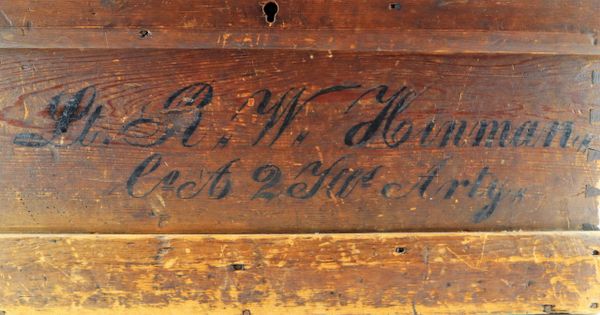 Lt. R. W. Hinman,
Co A 2 Arty,